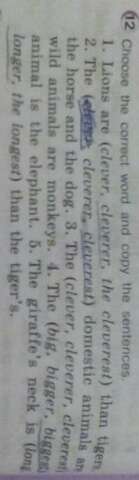 12 Choose the correct word and copy the sentences.
1. Lions are (clever, cleverer, the cleverest) than tigers
2. The (clever, cleverer, cleverest) domestic animals are
the horse and the dog. 3. The (clever, cleverer, cleverest)
wild animals are monkeys. 4. The (big, bigger, biggest)
animal is the elephant. 5. The giraffe's neck is (long
longer, the longest) than the tiger's.